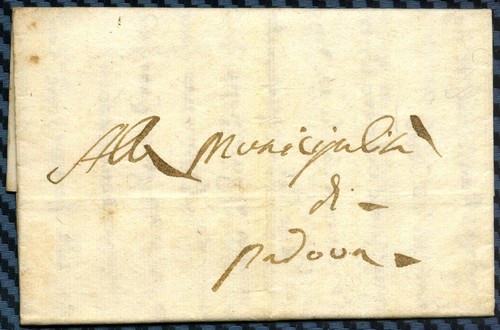 Alla Municipalità
di
Padova